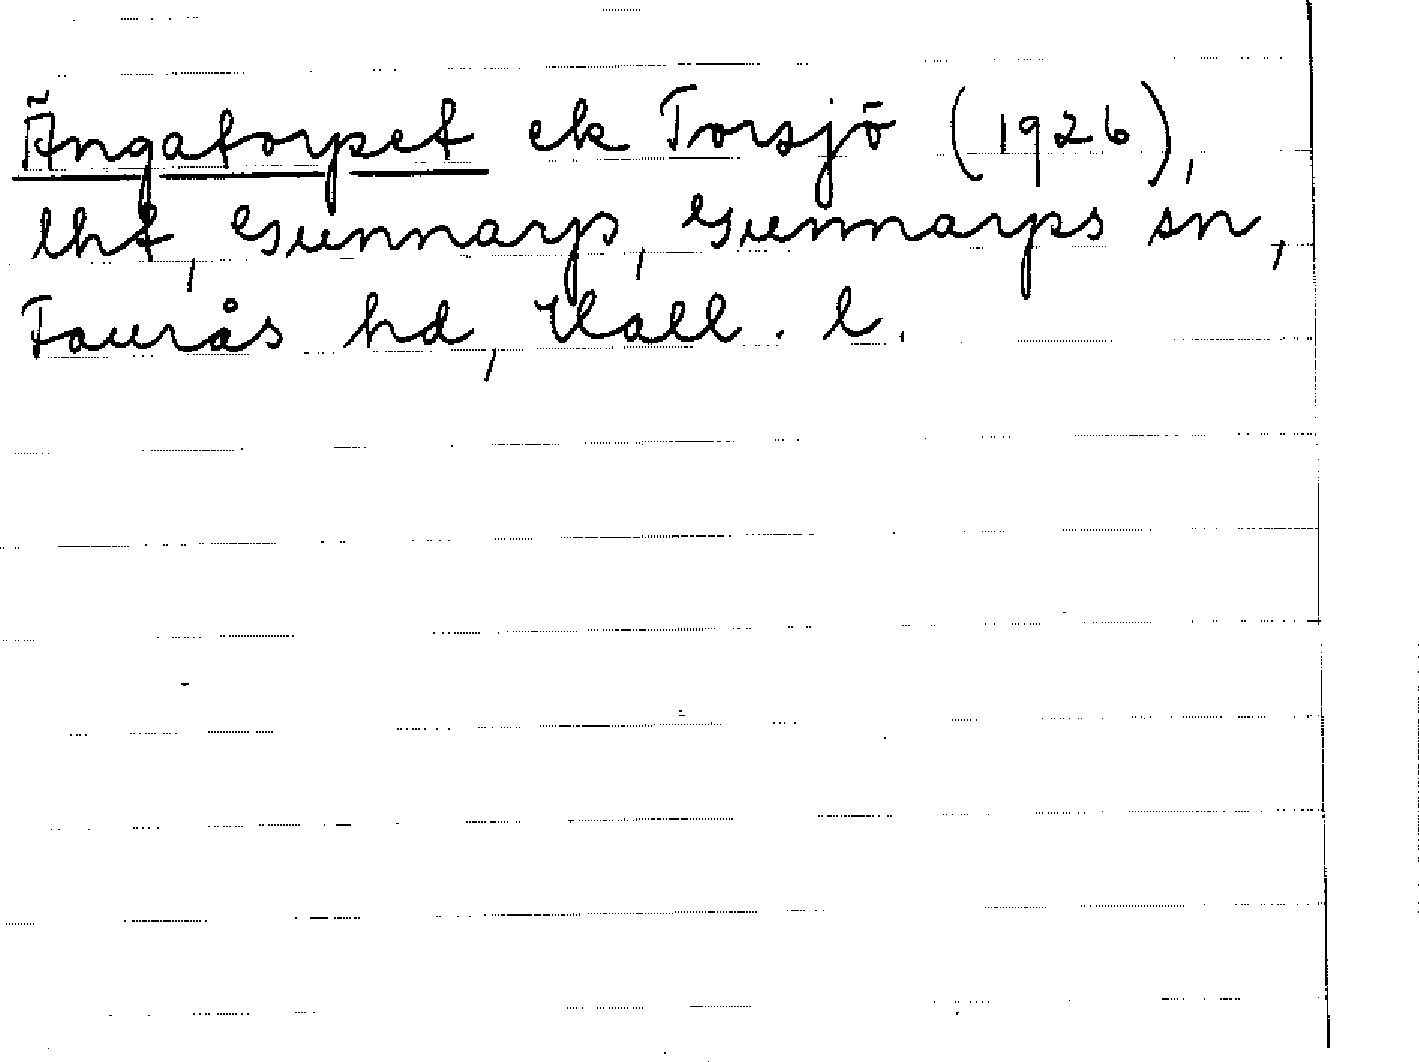 Ängatorpet ek Torsjö (1926),
lht, Gunnarp, Gunnarps sn,
Faurås hd, Hall. l.